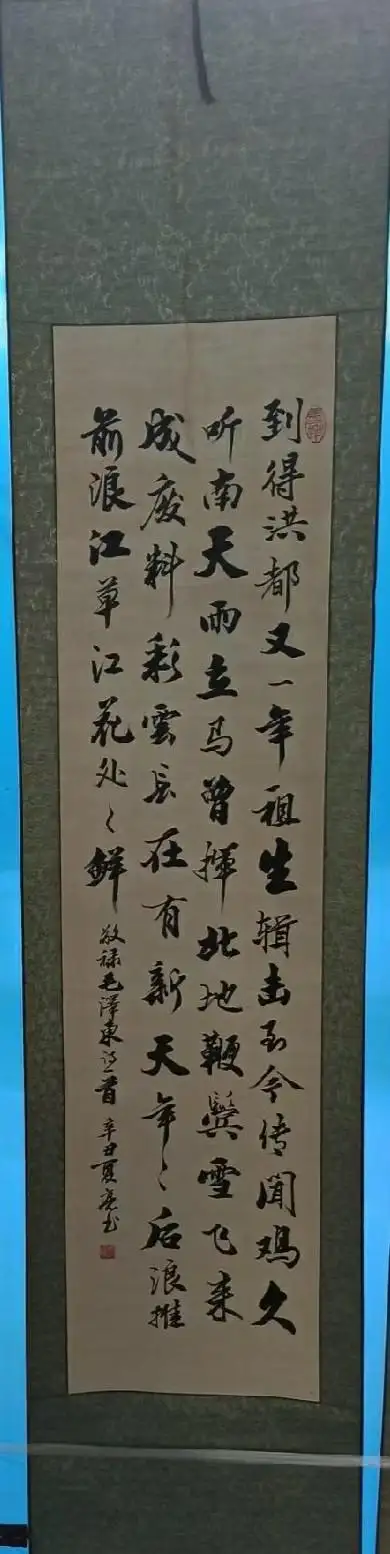 到得洪都又一年祖生辑击至今传闻鸡久
听南天雨立马曾挥北地鞭鬓雪飞来
成废料彩雲长在有新天年々后浪推
前浪江草江花处々鲜
敬录毛泽東诗一首 辛丑夏 书